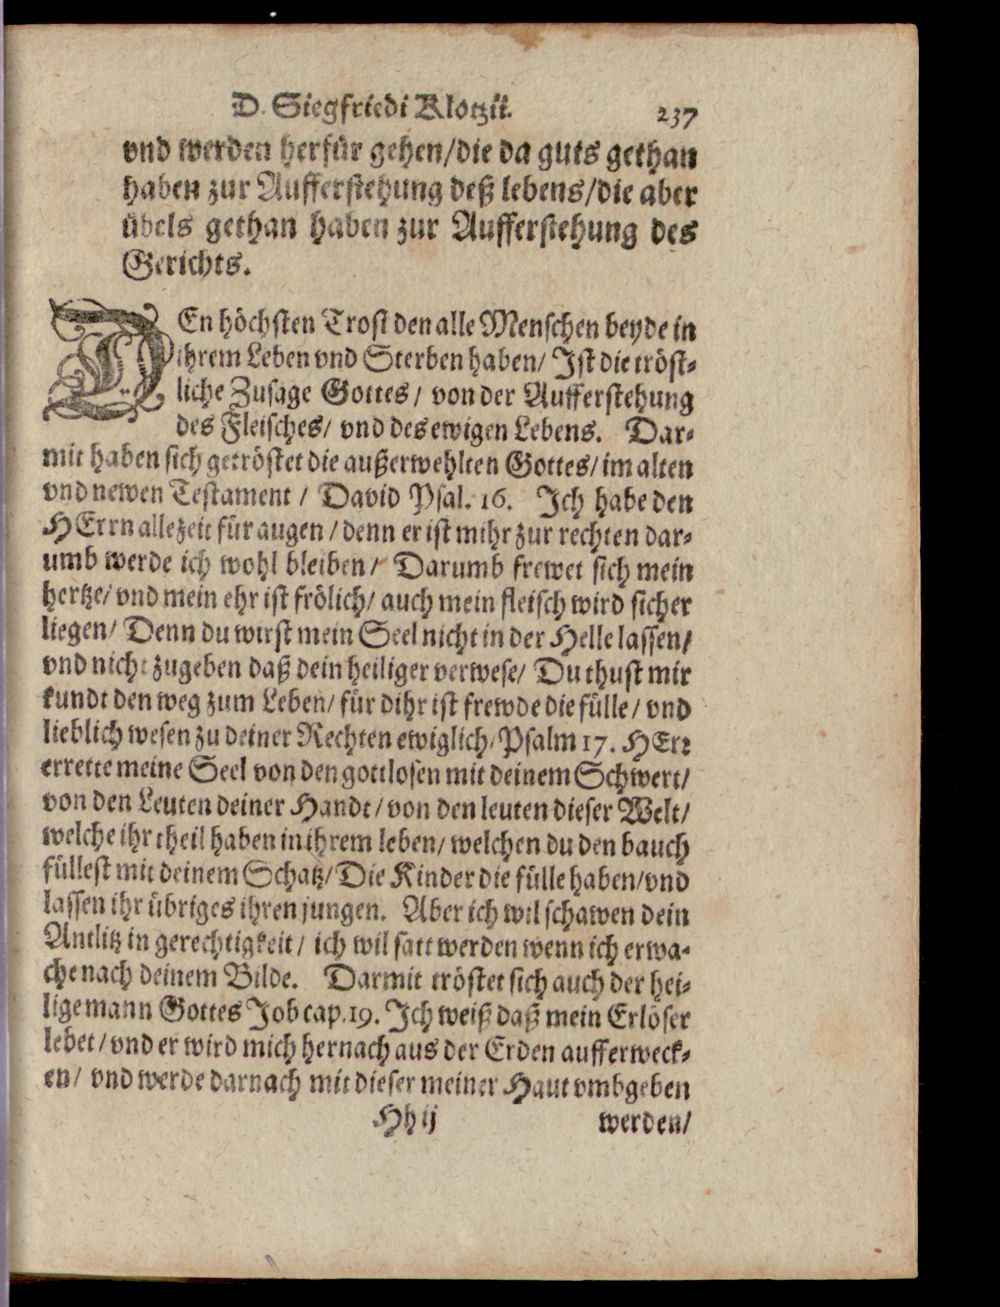 D. Siegfriedi Klotzii. 237
vnd werden herfür gehen/die da guts gethan
haben zur Aufferstehung deß lebens/die aber
übels gethan haben zur Aufferstehung des
Gerichts.
DEn höchsten Trost den alle Menschen beyde in
ihrem Leben vnd Sterben haben/ Ist die tröst-
liche Zusage Gottes/ von der Aufferstehung
des Fleisches/ vnd des ewigen Lebens. Dar-
mit haben sich getröstet die außerwehlten Gottes/ im alten
vnd newen Testament / David Psal. 16. Ich habe den
HErrn allezeit für augen / denn er ist mihr zur rechten dar-
umb werde ich wohl bleiben/ Darumb frewet sich mein
hertze/ vnd mein ehr ist frölich/ auch mein fleisch wird sicher
liegen/ Denn du wirst mein Seel nicht in der Helle lassen/
vnd nicht zugeben daß dein heiliger verwese/ Du thust mir
kundt den weg zum Leben/ für dihr ist frewde die fülle/ vnd
lieblich wesen zu deiner Rechten ewiglich/ Psalm 17. HErr
errette meine Seel von den gottlosen mit deinem Schwert/
von den Leuten deiner Handt/ von den leuten dieser Welt/
welche ihr theil haben in ihrem leben/ welchen du den bauch
füllest mit deinem Schatz/ Die Kinder die fülle haben/vnd
lassen ihr übriges ihren jungen. Aber ich wil schawen dein
Antlitz in gerechtigkeit/ ich wil satt werden wenn ich erwa-
che nach deinem Bilde. Darmit tröstet sich auch der hei-
lige mann Gottes Job cap. 19. Ich weiß daß mein Erlöser
lebet/ vnd er wird mich hernach aus der Erden aufferweck-
en/ vnd werde darnach mit dieser meiner Haut vmbgeben
Hh ij werden/